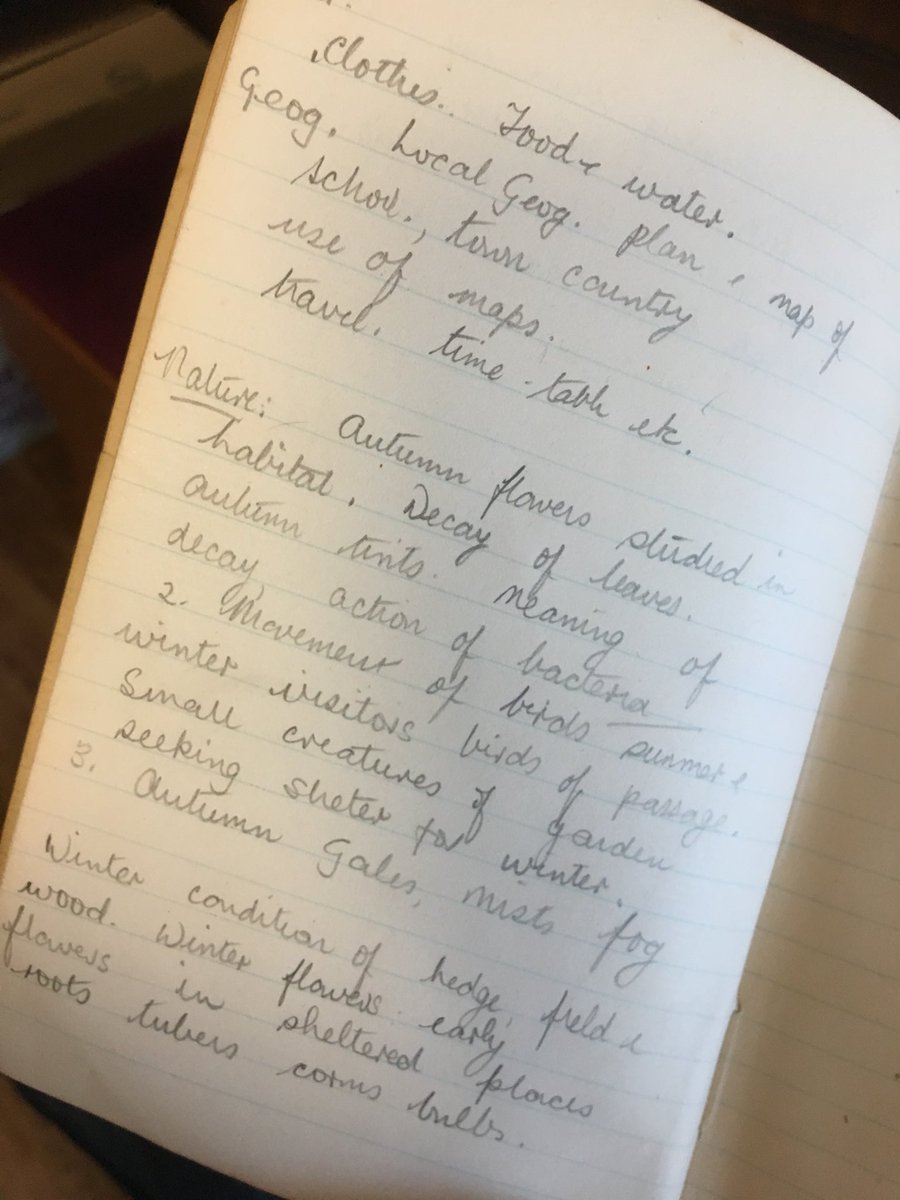 Clothes. Food & water.
Geog. Local Geog. plan & map of
school, town country
use of maps.
travel. time-table etc.
Nature: Autumn flowers studied in
habitat. Decay of leaves.
autumn tints. Meaning of
decay, action of bacteria
2. Movement of birds summer &
winter visitors birds of passage.
Small creatures of garden
seeking sheter for winter.
3. Autumn Gales, mists fog
Winter condition of hedge, field &
wood. Winter flowers early
flowers in sheltered places
roots tubers corms bulbs.